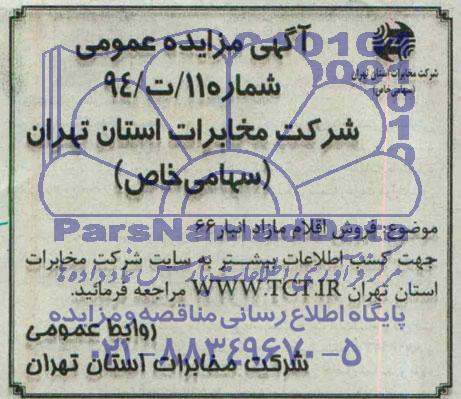 آگهی مزایده عمومی
شماره ۱۱/ت/۹٤
شرکت مخابرات استان تهران
(سهامی خاص)
شرکت مخابرات استان تهران
(سهامی خاص)
موضوع: فروش اقلام مازاد انبار ۶۶
جهت کسب اطلاعات بیشتر به سایت شرکت مخابرات
استان تهران WWW.TCT.IR مراجعه فرمائید.
روابط عمومی
شرکت مخابرات استان تهران
ParsNamadData
پایگاه اطلاع رسانی مناقصه و مزایده
۰۲۱-۸۸۳۴۹۶۷۰-۵